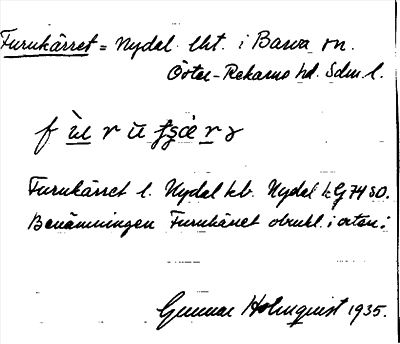 Furukärret = Nydal lht. i Barva sn.
Öster-Rekarne hd. Sdm. l.
Furukärret l. Nydal kb. Nydal kG 74 SO.
Benämningen Furukärret obrukl. i orten.
Gunnar Holmquist 1935.